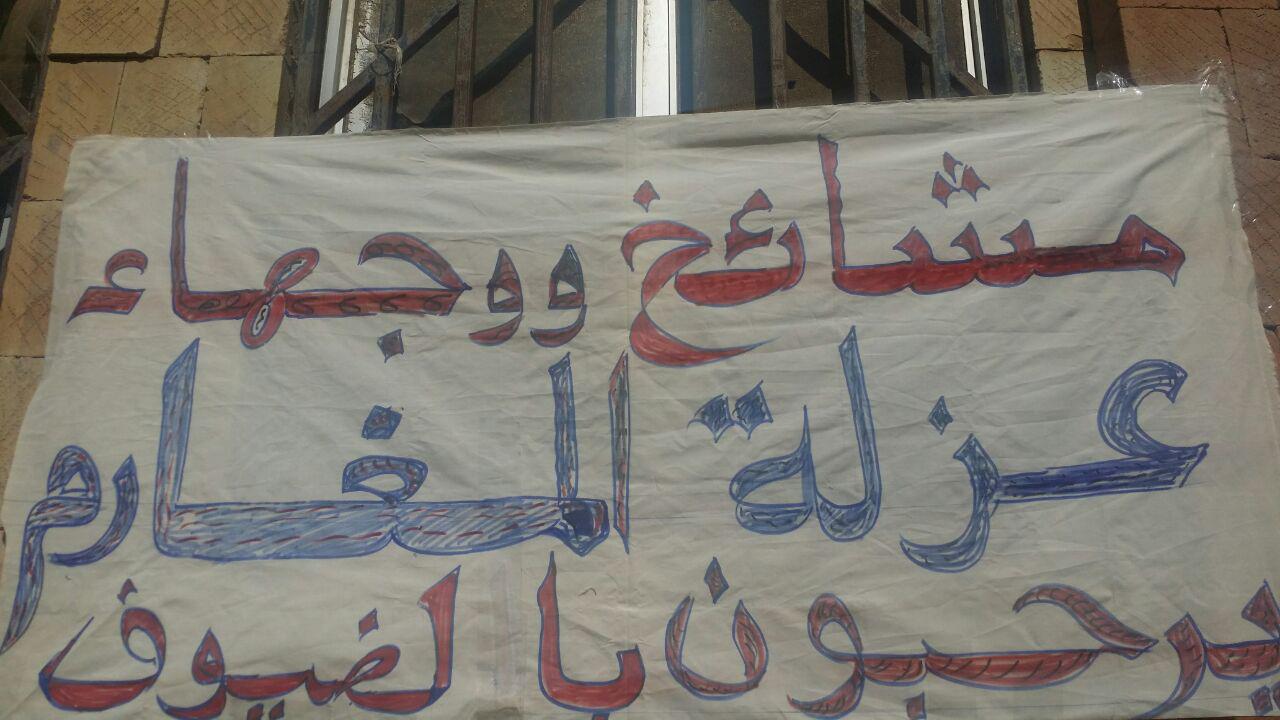 مشائخ ووجهاء
عزلة المغارم
يرحبون بالضيوف